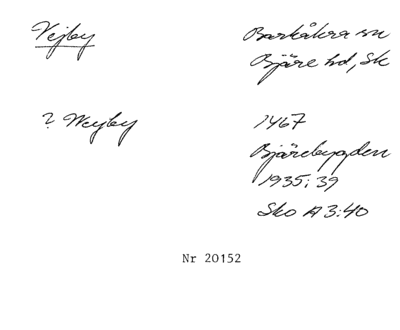 Vejby
Barkåkra sn
Bjäre hd, Sk
? Weyby
1467
Bjärebygden
1935:39
Sko A 3:40
Nr 20152